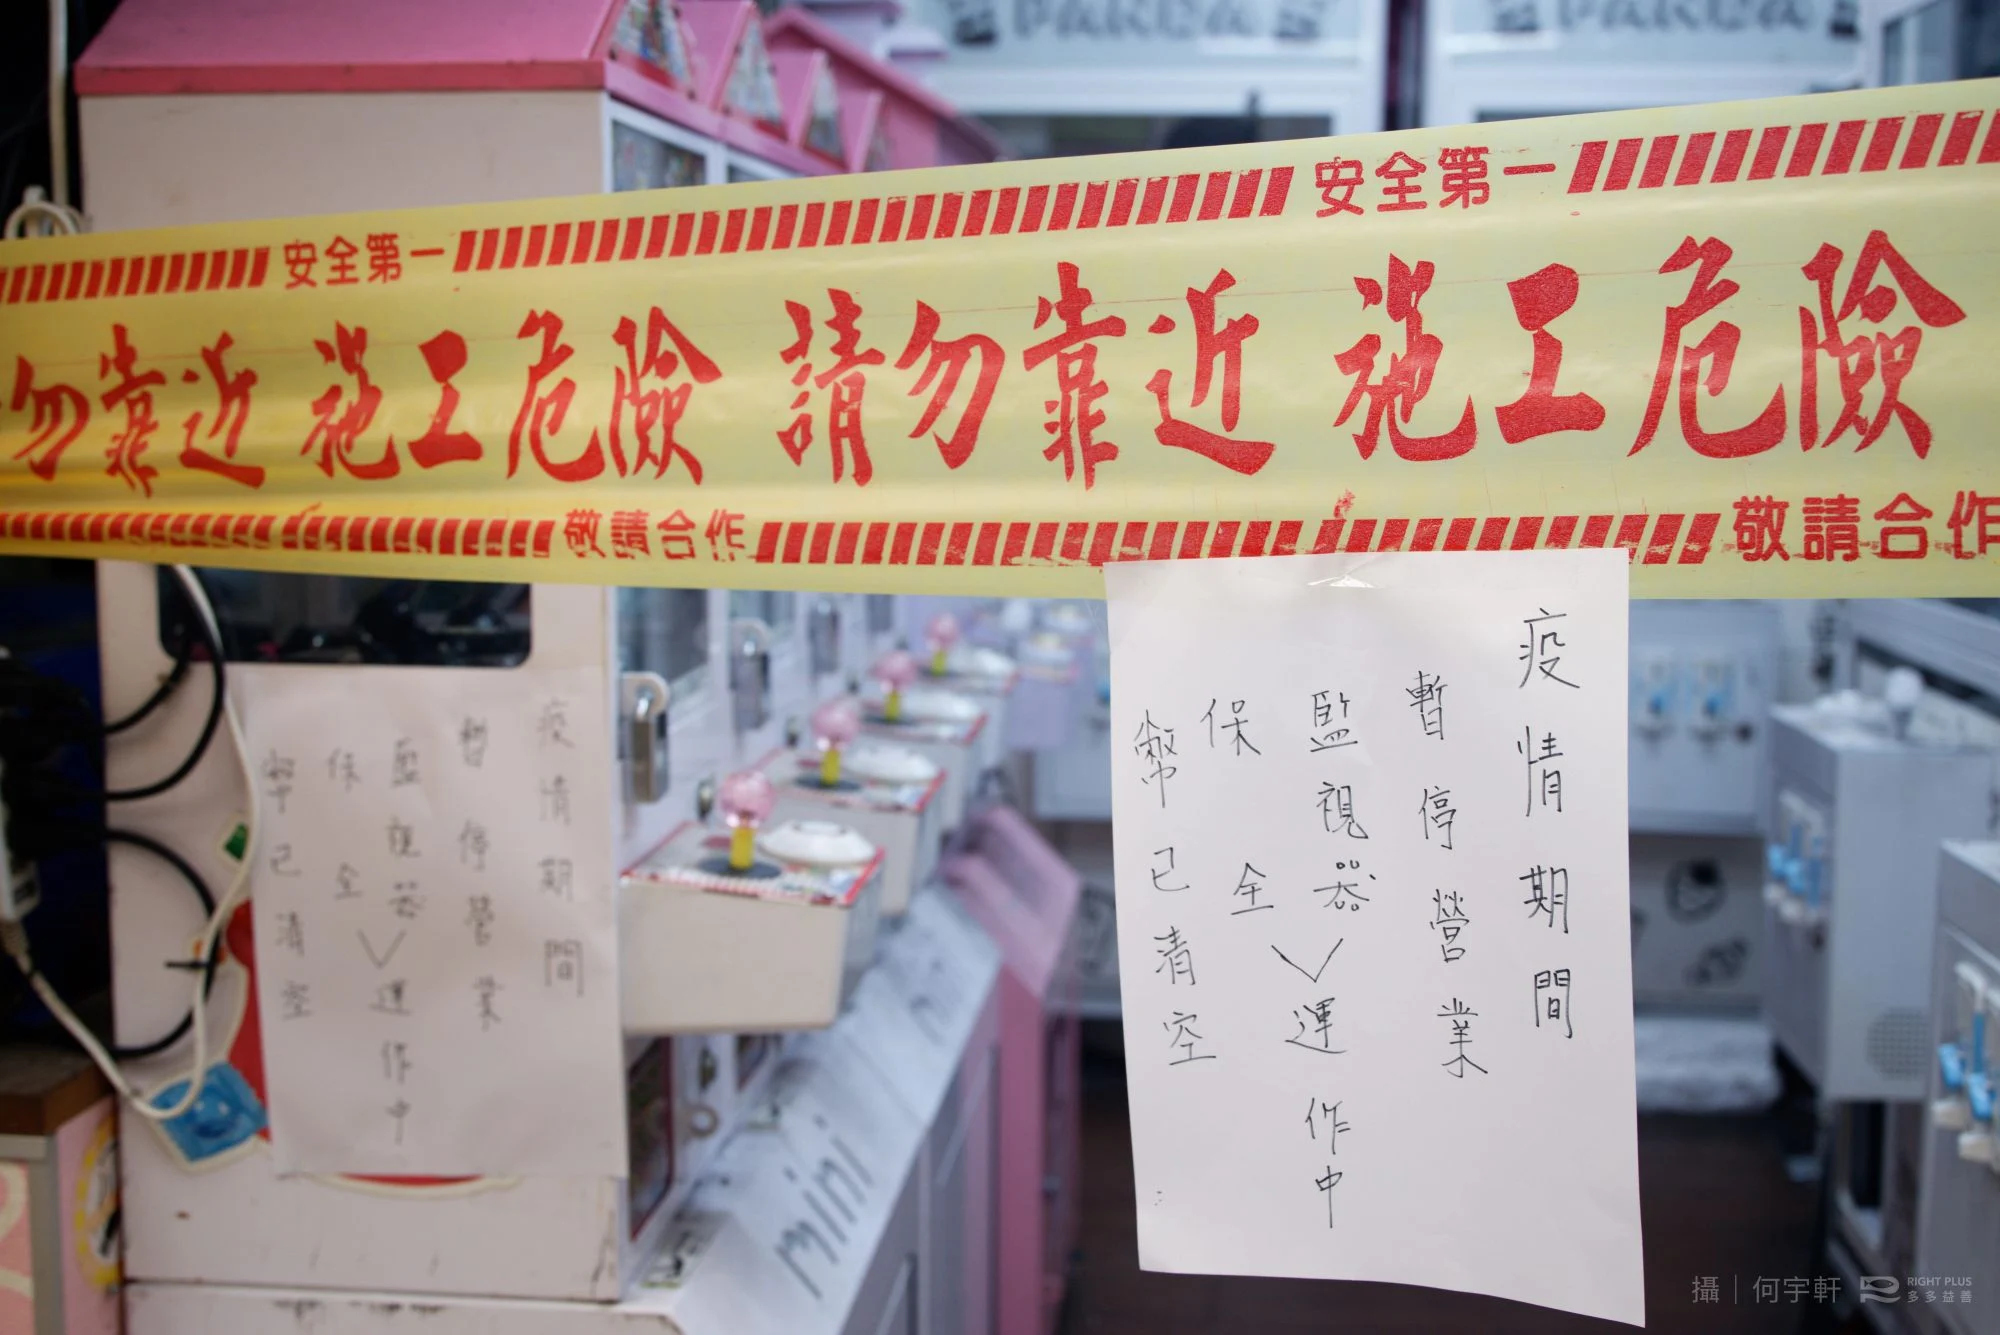 PARCA
PARCA
安全第一
安全第一
勿靠近 施工危險 請勿靠近 施工危險
敬請合作
敬請合作
疫情期間
暫停營業
監視器
保全
運作中
幣已清空
疫情期間
暫停營業
監視器
保全
運作中
幣已清空
mini
攝｜何宇軒
RIGHT PLUS
多多益善